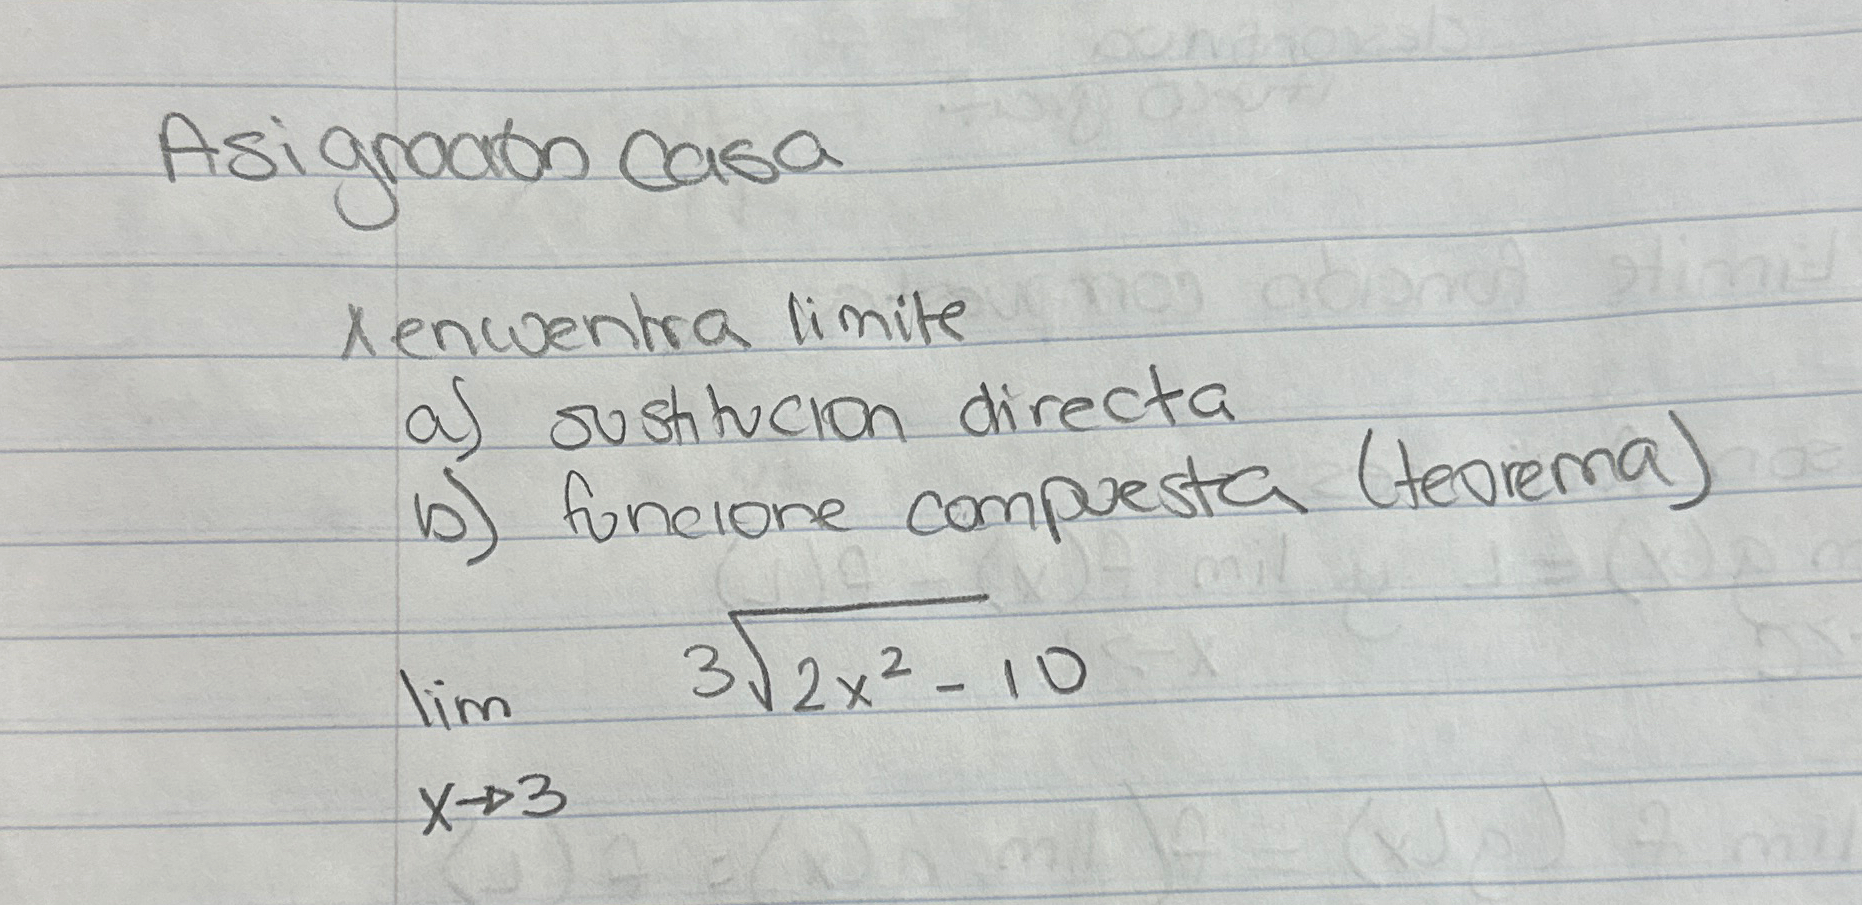 Asignacion casa
x encuentra limite
a) sustitucion directa
b) funcione compuesta (teorema)
lim 3√2x² - 10
x→3